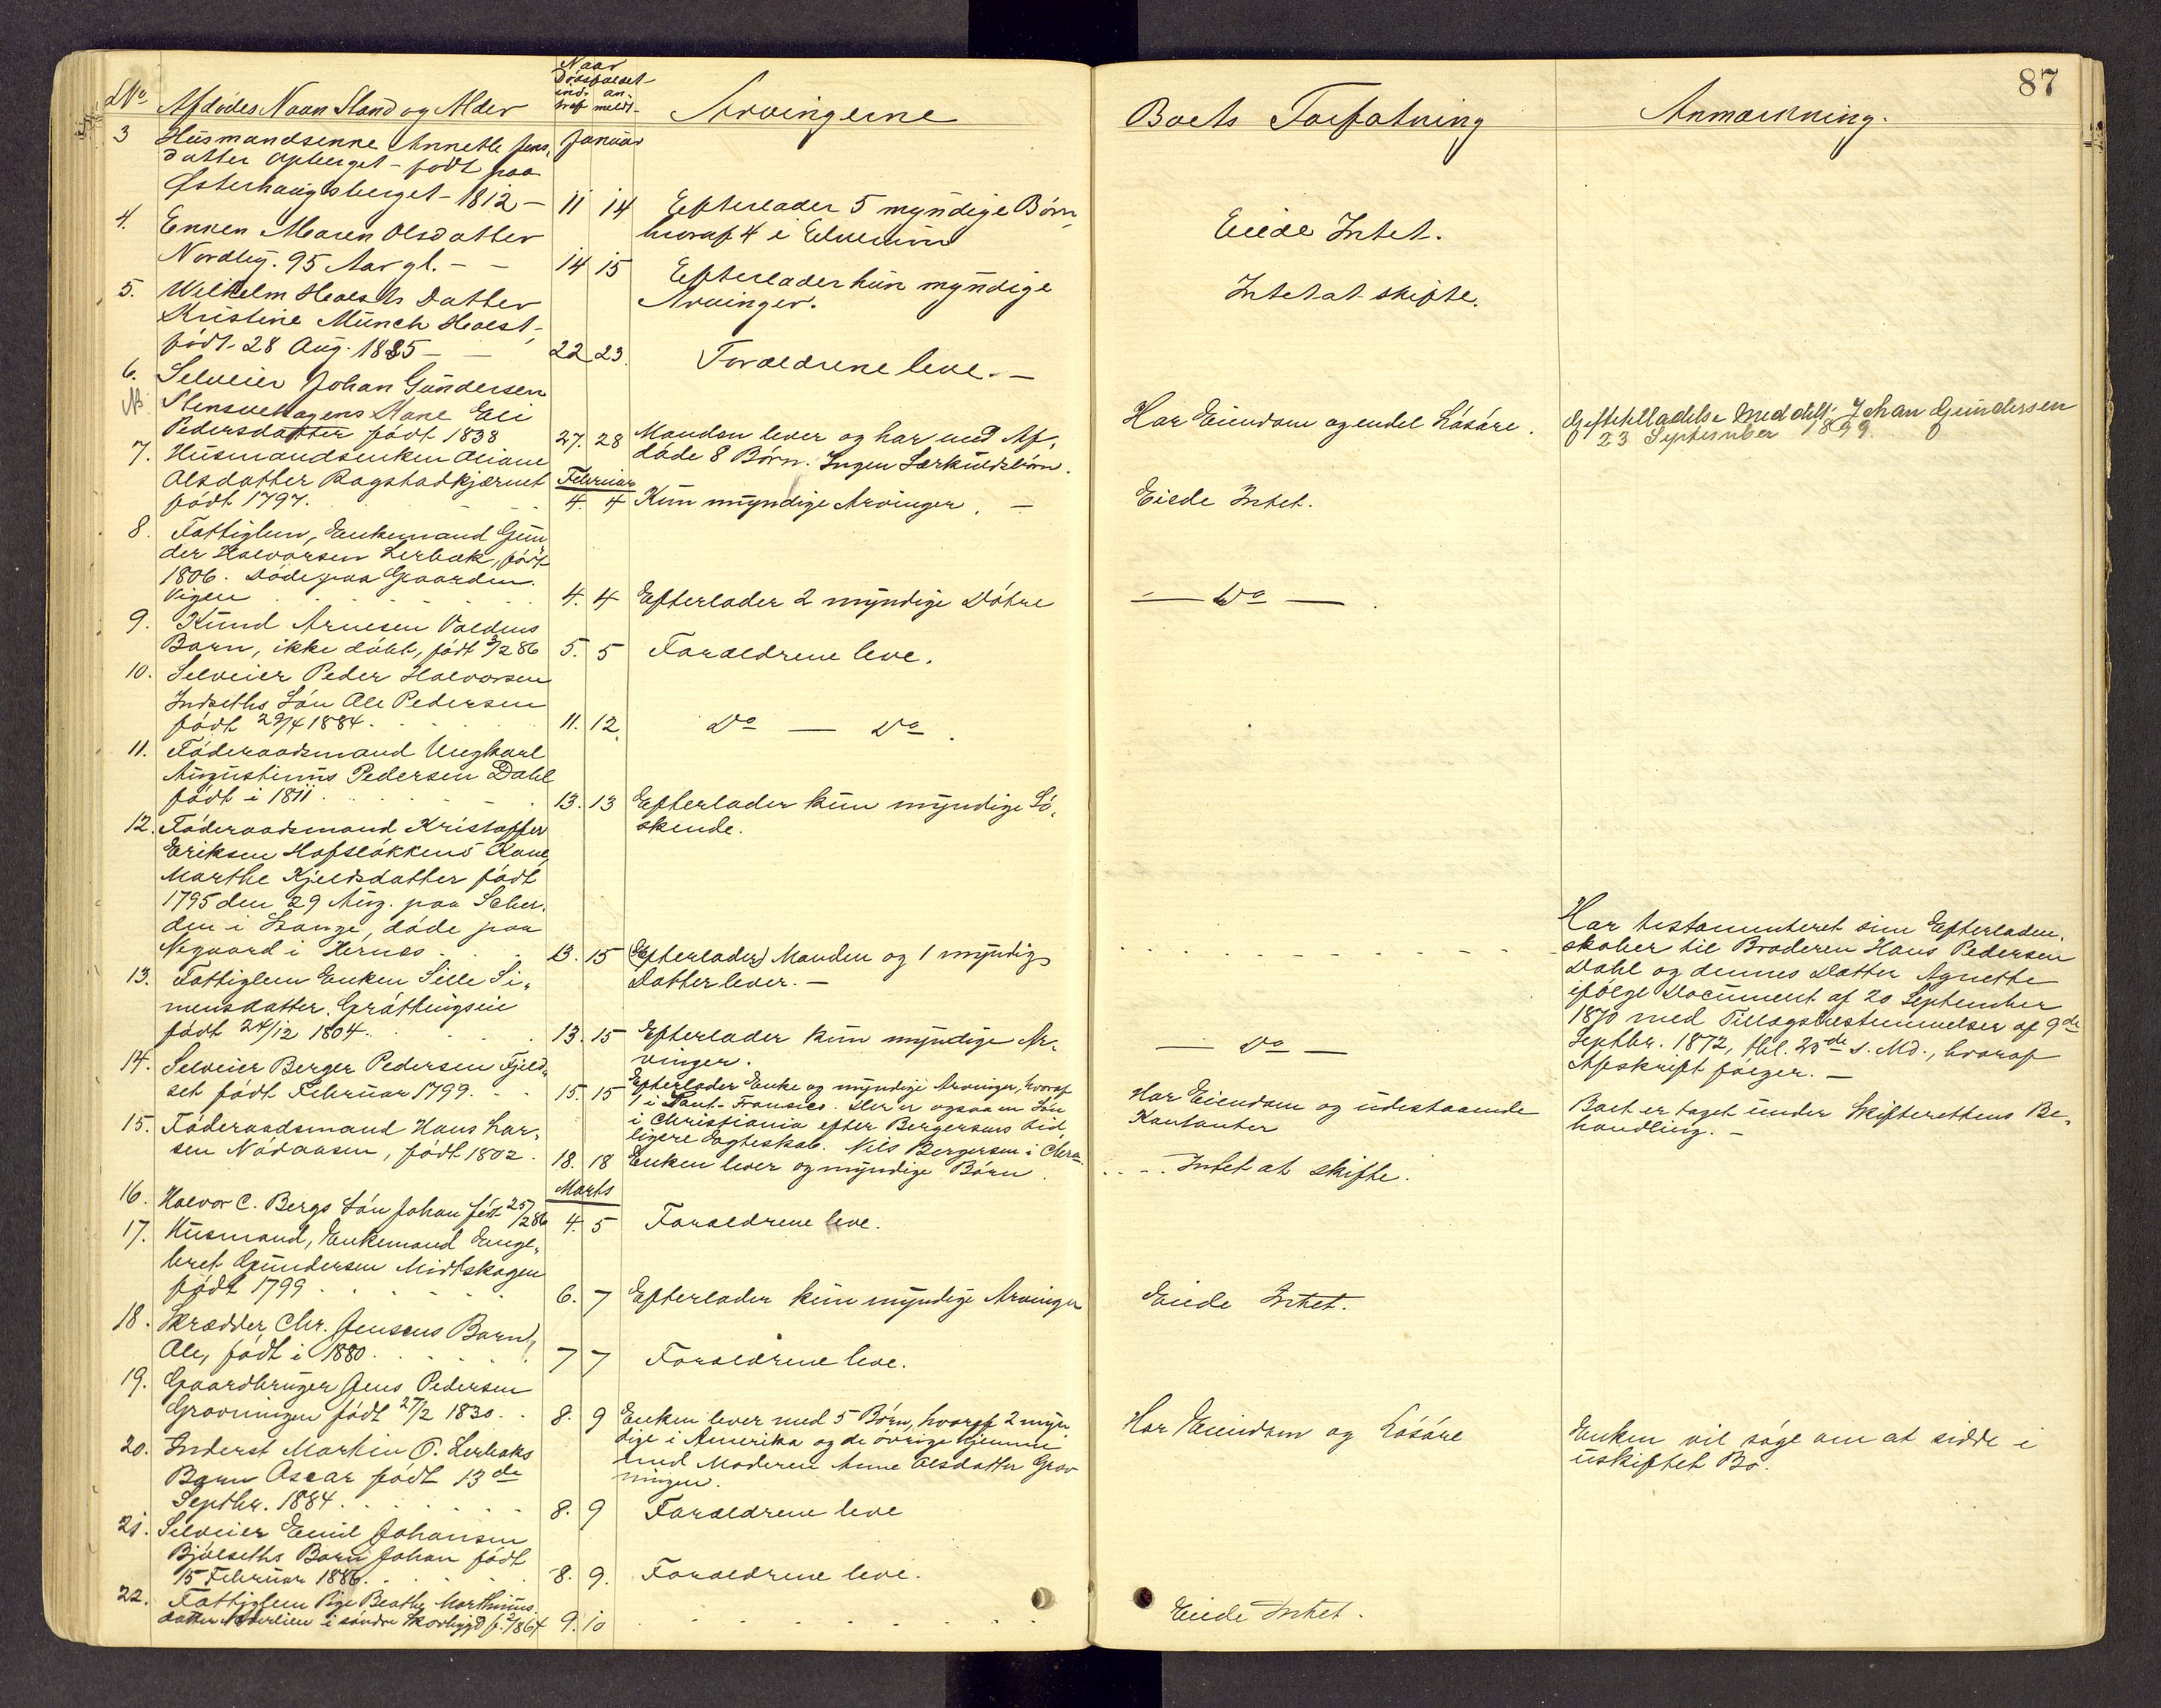 87
No Afdødes Navn Stand og Alder
Naar Dødsfaldet
ind- an-
traf meldt
Arvingerne
Boets Forfatning
Anmærkning.
3 Husmandsenne Annette Jens,
datter Opberget - født paa
Østerhaugsberget - 1812 -
Januar
11 14 Efterlader 5 myndige Børn
hvoraf 4 i Elverum
Eiede Intet.
4. Enken Maren Olsdatter
Nordby. 95 Aar gl. - -
14 15 Efterlader kun myndige
Arvinger.
Intet at skifte.
5. Wilhelm Holsts Datter
Kristine Münch Holst,
født 28 Aug. 1885 - -
22 23 Forældrene leve. -
6. Selveier Johan Gundersen
NB Stensvehagens Kone Eli
Pedersdatter født 1838
27. 28 Manden lever og har med Af,
døde 8 Børn. Ingen Særkuldsbørn.
Har Eiendom og endel Løsøre.
Gjestetilladelse meddelt Johan Gundersen
23 September 1899
7. Husmandsenken Oliane
Olsdatter Bagstadkjærnet
født 1797.
Februar
4. 4 Kun myndige Arvinger. -
Eiede Intet.
8. Fattiglem, Enkemand Gun
der Halvorsen Lerbæk, født
1806. Døde paa Gaarden
Vigen
4. 4 Efterlader 2 myndige Døtre
- Do -
9. Knud Arnesen Voldens
Barn, ikke døbt, født 3/2 86
5. 5 Forældrene leve.
10. Selveier Peder Halvorsen
Indseths Søn Ole Pedersen
født 29/4 1884.
11. 12. Do - Do.
11. Føderaadsmand Ungkarl
Augustinus Pedersen Dahl
født i 1811.
13. 13 Efterlader kun myndige Sø,
skende.
12. Føderaadsmand Kristoffer
Eriksen Hofsløkkens Kone,
Marthe Kjeldsdatter født
1795 den 29 Aug. paa
den i Stange, døde paa
Nygaard i Hernes
13. 15 (Efterlader) Manden og 1 myndig
Datter lever. -
Har testamenteret sine Efterladen,
skaber til Broderen Hans Pedersen
Dahl og dennes Datter Agnethe
ifølge Document af 20 September
1870 med Tillægsbestemmelser af 9de
Septbr. 1872, thl. 23de s. Md., hvoraf
Afskrift følger. -
13. Fattiglem Enken Sille Si,
mensdatter. Grøttingseie
født 24/12 1804.
13. 15 Efterlader kun myndige Ar,
vinger.
- Do -
14. Selveier Berger Pedersen Fjeld,
set født Februar 1799.
15. 15 Efterlader Enke og myndige Arvinger, hvoraf
1 i Sant-Fransico. Der er ogsaa en Søn
i Christiania efter Bergersens tid
ligere Ægteskab. Nils Bergersen i Chra.
Har Eiendom og udestaaende
Kontanter
Boet er taget under Skifterettens Be,
handling. -
15. Føderaadsmand Hans Lar,
sen Nødaasen, født 1802.
18. 18 Enken lever og myndige Børn.
Intet at skifte.
16. Halvor C. Bergs Søn Johan født 25/2 86
Marts
4. 5 Forældrene leve.
17. Husmand, Enkemand Enge,
bret Gundersen Midtskogen
født 1799
6. 7 Efterlader kun myndige Arvinger
Eiede Intet.
18. Skrædder Chr. Jensens Barn,
Ole, født i 1880.
7 7 Forældrene leve.
19. Gaardbruger Jens Pedersen
Grovningen født 27/2 1830.
8. 9 Enken lever med 5 Børn, hvoraf 2 myn
dige i Amerika og de øvrige hjemme
med Moderen Anne Olsdatter Grov
ningen.
Har Eiendom og Løsøre
Enken vil søge om at sidde i
uskiftet Bo.
20. Inderst Martin O. Lerbæks
Barn Oscar født 13de
Septbr. 1884.
8. 9 Forældrene leve
21. Selveier Emil Johansen
Bjølseths Barn Johan født
15 Februar 1886.
8. 9. Forældrene leve.
22. Fattiglem Pige Beathe Marthinus
datter i søndre Skovbygd f. 2/ 1864
9. 10
Eiede Intet.